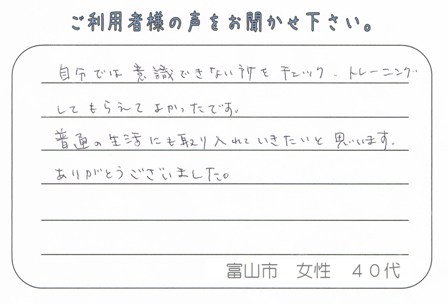 ご利用者様の声をお聞かせ下さい。
自分では意識できない所をチェック、トレーニング
してもらえてよかったです。
普通の生活にも取り入れていきたいと思います。
ありがとうございました。
富山市 女性 40代